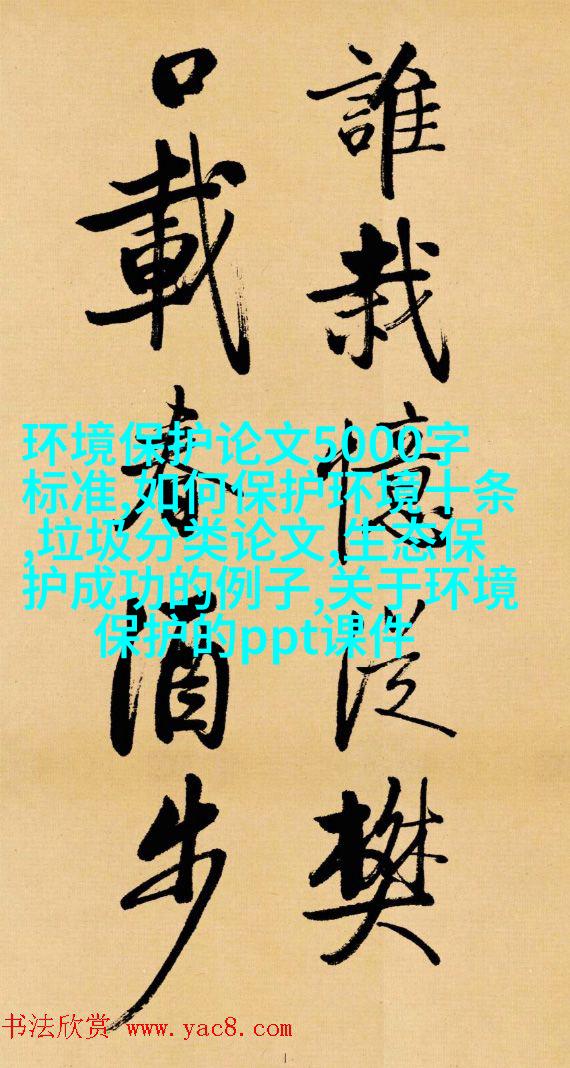 誰栽憶從樊
口載春酒步
环境保护论文5000字
标准,如何保护环境十条
,垃圾分类论文,生态保
护成功的例子,关于环境
保护的ppt课件
书法欣赏 www.yac8.com